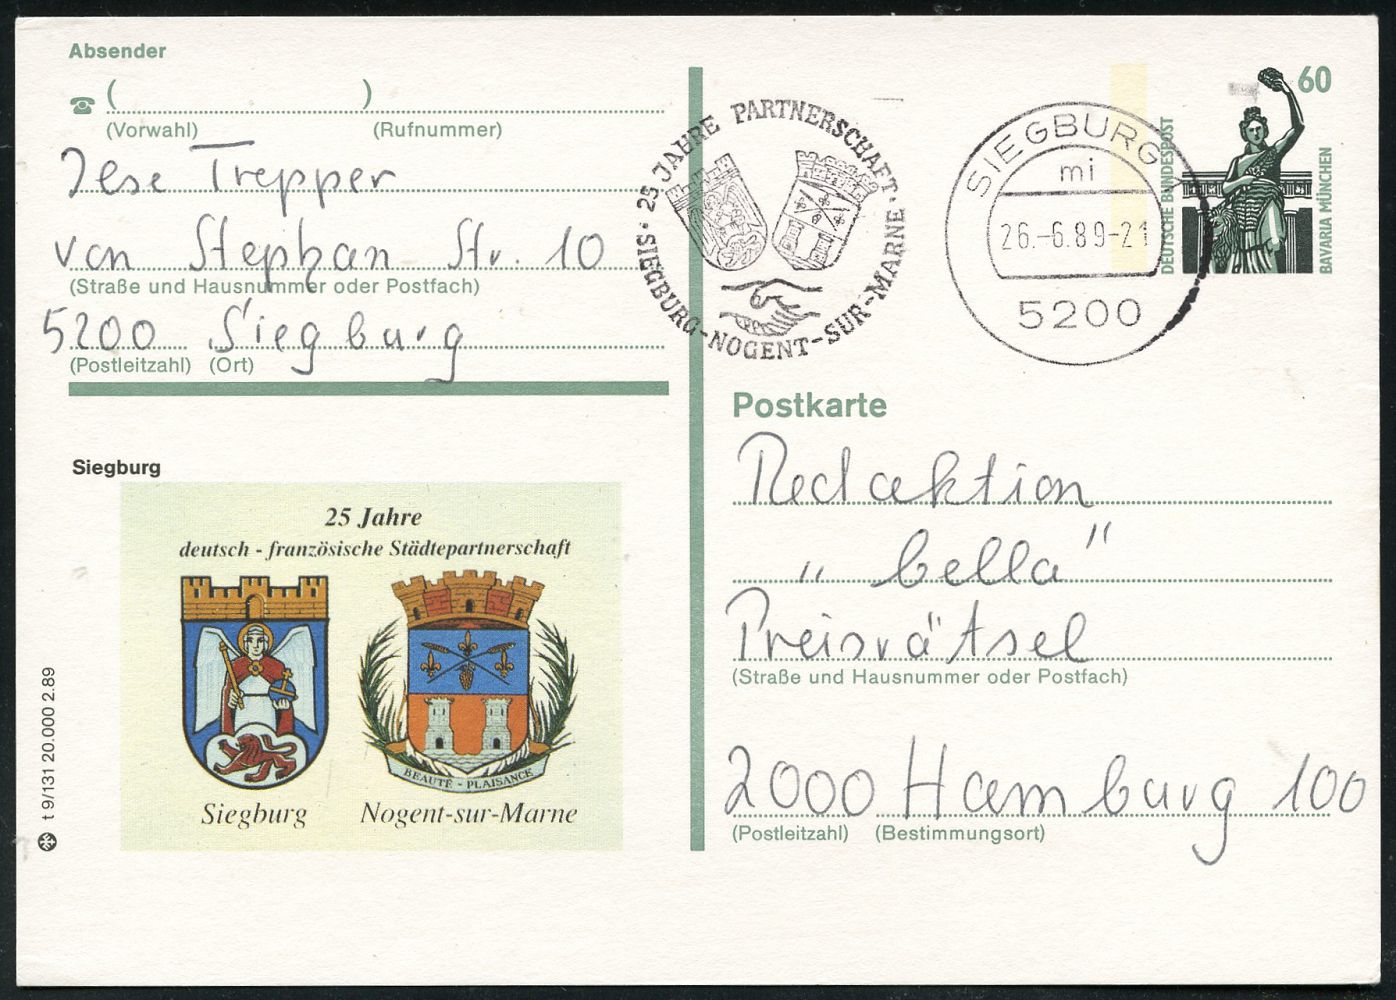 Absender
( )
(Vorwahl) (Rufnummer)
Ilse Trepper
von Stephan Str. 10
(Straße und Hausnummer oder Postfach)
5200 Siegburg
(Postleitzahl) (Ort)
25 JAHRE PARTNERSCHAFT · SIEGBURG-NOGENT-SUR-MARNE ·
SIEGBURG 1
mi
26.-6.89-21
5200
60
DEUTSCHE BUNDESPOST
BAVARIA MÜNCHEN
Siegburg
25 Jahre
deutsch - französische Städtepartnerschaft
BEAUTÉ - PLAISANCE
Siegburg Nogent-sur-Marne
t 9/131 20.000 2.89
Postkarte
Redaktion
„ bella "
Preisrätsel
(Straße und Hausnummer oder Postfach)
2000 Hamburg 100
(Postleitzahl) (Bestimmungsort)